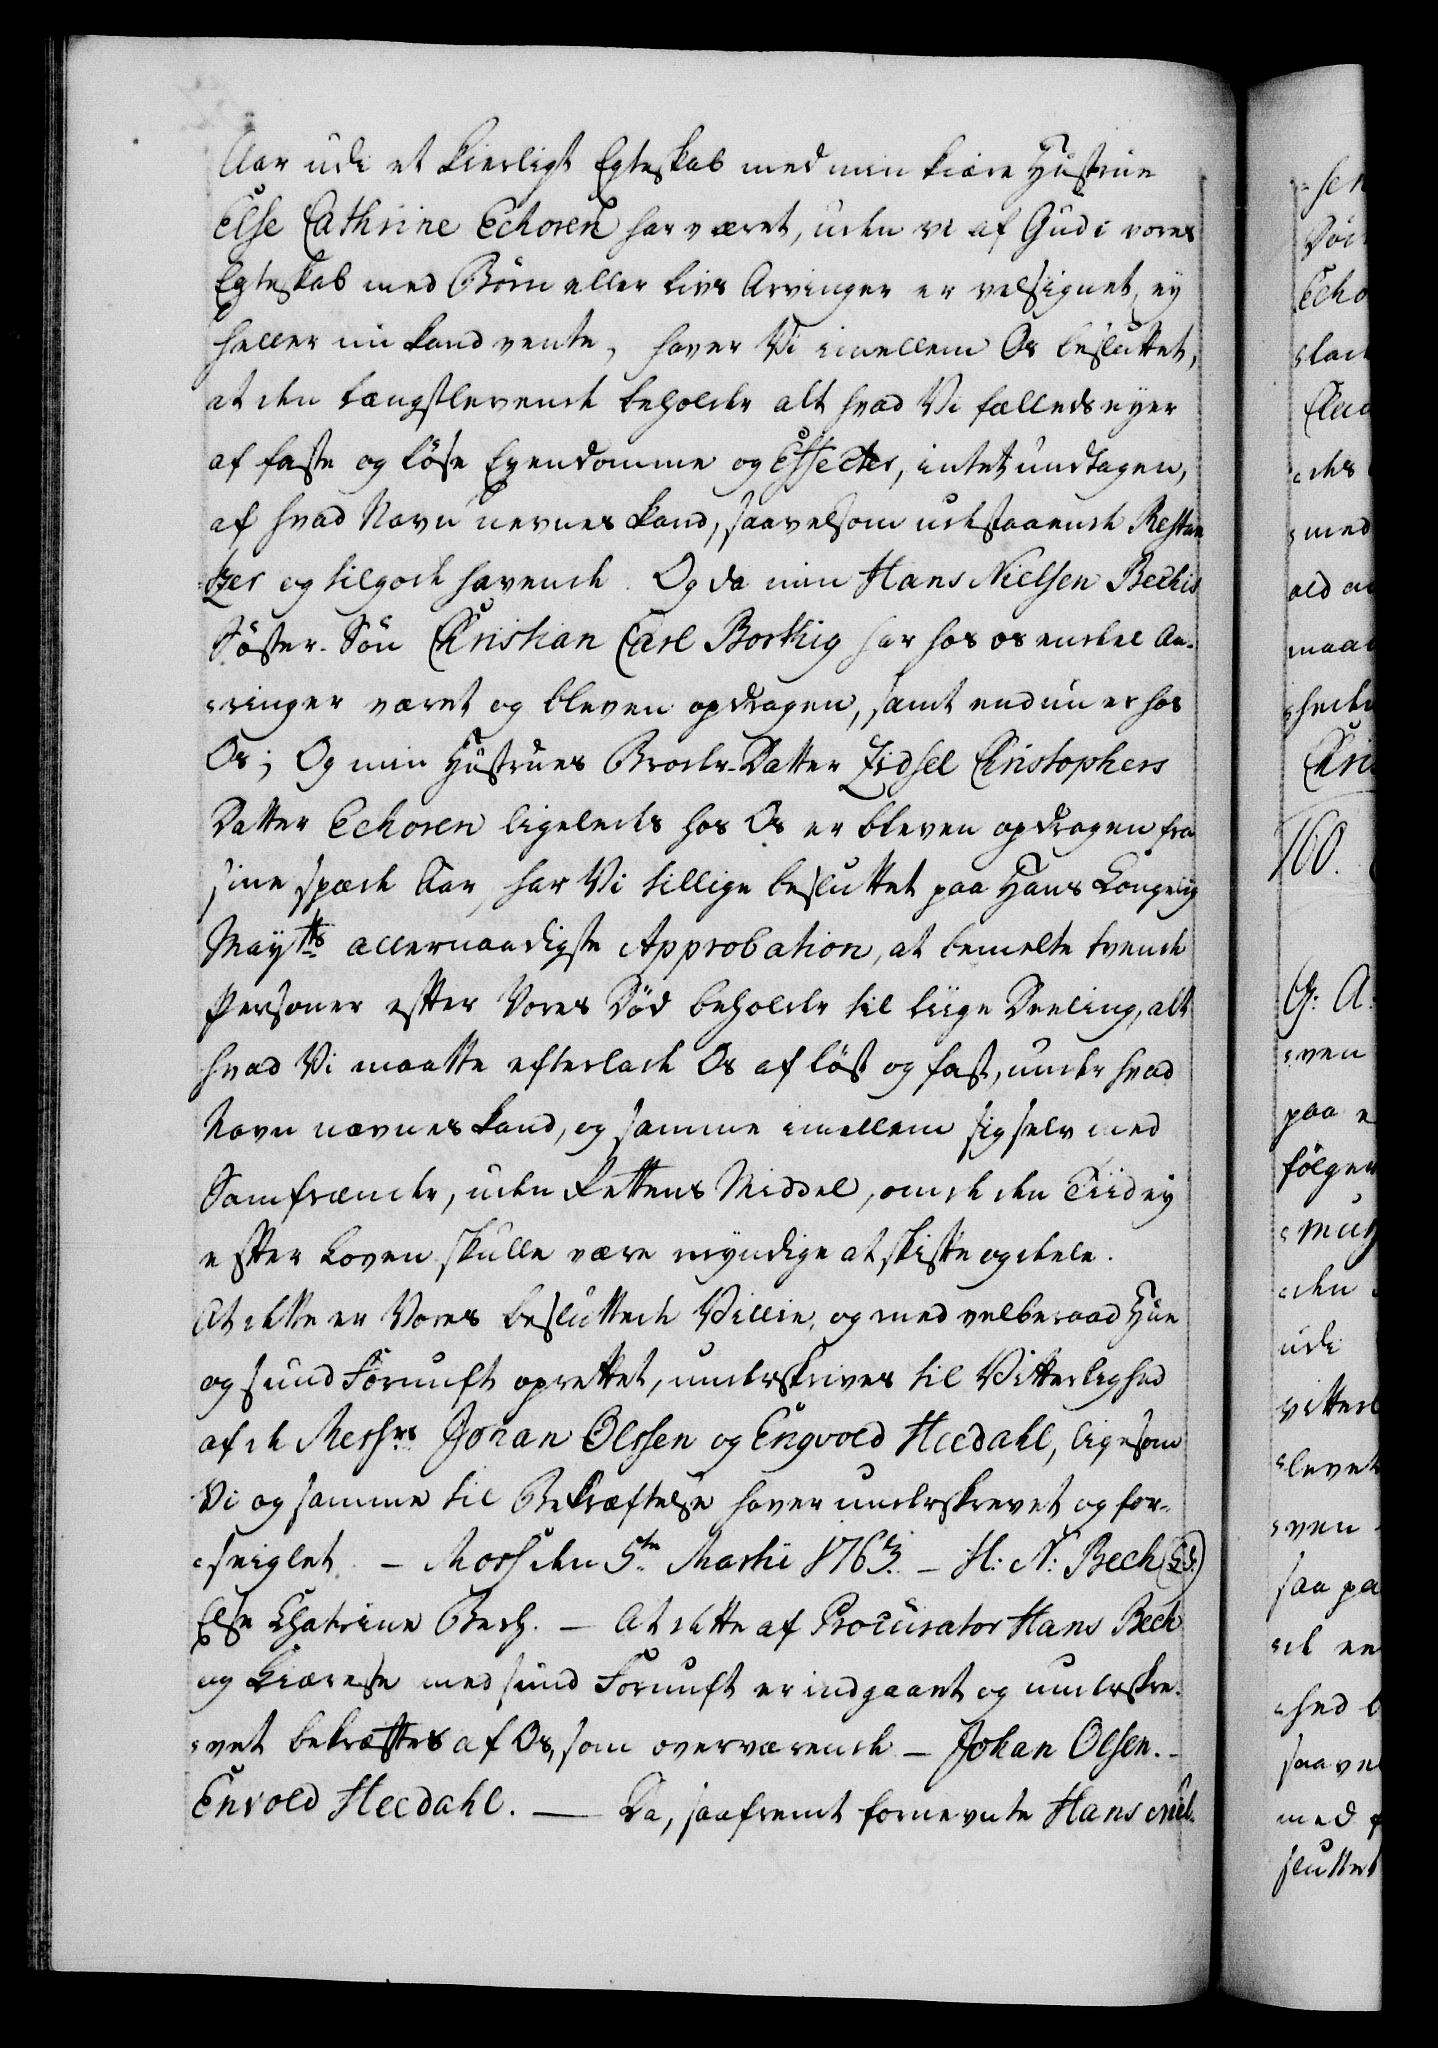 Aar udi et kierligt Egteskab med min kiære Hustrue
Else Cathrine Echoren har været, uden vi af Gud i vores
Egteskab med Börn eller livs Arvinger er velsignet, ey
heller nu kand vente, haver Vi imellem Os besluttet,
at den længstlevende beholder alt hvad Vi fælleds eyer
af faste og löse Eyendomme og Effecter, intet undtagen,
af hvad Navn nevnes kand, saavelsom udestaaende Restan
-tzer og tilgode havende. Og da min Hans Nielsen Bechis
Söster-Sön Christian Carl Borthig har hos os endeel Aa-
-ringer været og bleven opdragen, samt endnu er hos
Os; Og min Hustrues Broder-Datter Zidsel Christophers
Datter Echoren ligeleds hos Os er bleven opdragen fra
sine spæde Aar, har Vi tillige besluttet paa Hans Kongelig
Mayts allernaadigste Approbation, at bemelte tvende
Personer efter Vores Död beholder til liige Deeling, alt
hvad Vi maatte efterlade Os af löst og fast, under hvad
Navn nævnes kand, og samme imellem sig selv med
Samfrænder, uden Rettens Middel, om de den Tiid ey
efter Loven skulle være myndige at skifte og dele.
At dette er Vores besluttede Villie, og med velberaad Hue
og sund Fornuft oprettet, underskrives til Vitterlighed
af de Messrs Johan Olssen og Engvold Heedahl, ligesom
Vi og samme til Bekræftelse haver underskrevet og for-
-seiglet. - Moss den 5te Martii 1763. - H: N: Bech (L.S.)
Else Chatrine Bech. - At dette af Procurator Hans Bech
og Kiæreste med sund Fornuft er indgaaet og underskre-
-vet bekræftes af Os, som overværende - Johan Olsen. -
Envold Heedahl. - Da, saafremt fornevnte Hans Niel-